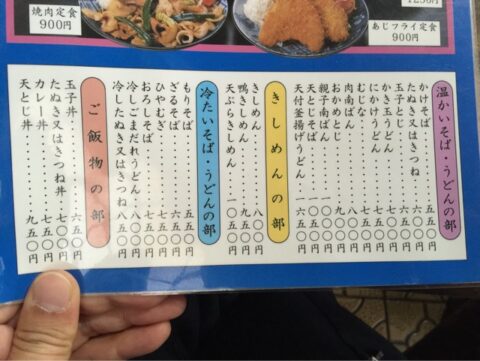 焼肉定食
900円
あじフライ定食
900円
温かいそば・うどんの部
かけそば………五五〇円
たぬき又はきつね………六五〇円
玉子とじ
かき玉うどん
にかけうどん
むじな
肉南ばん
おかめとじ
親子南ばん
天とじそば
天付釜揚げうどん
きしめんの部
きしめん………八〇〇円
鴨きしめん
天ぷらきしめん………一〇五〇円
冷たいそば・うどんの部
もりそば………五五〇円
ざるそば………六五〇円
ひやむぎ………七五〇円
おろしそば………七五〇円
冷しごまだれうどん………八五〇円
冷したぬき又はきつね………八五〇円
ご飯物の部
玉子丼………六五〇円
たぬき又はきつね丼………七〇〇円
カレー丼………七五〇円
天とじ丼………九五〇円